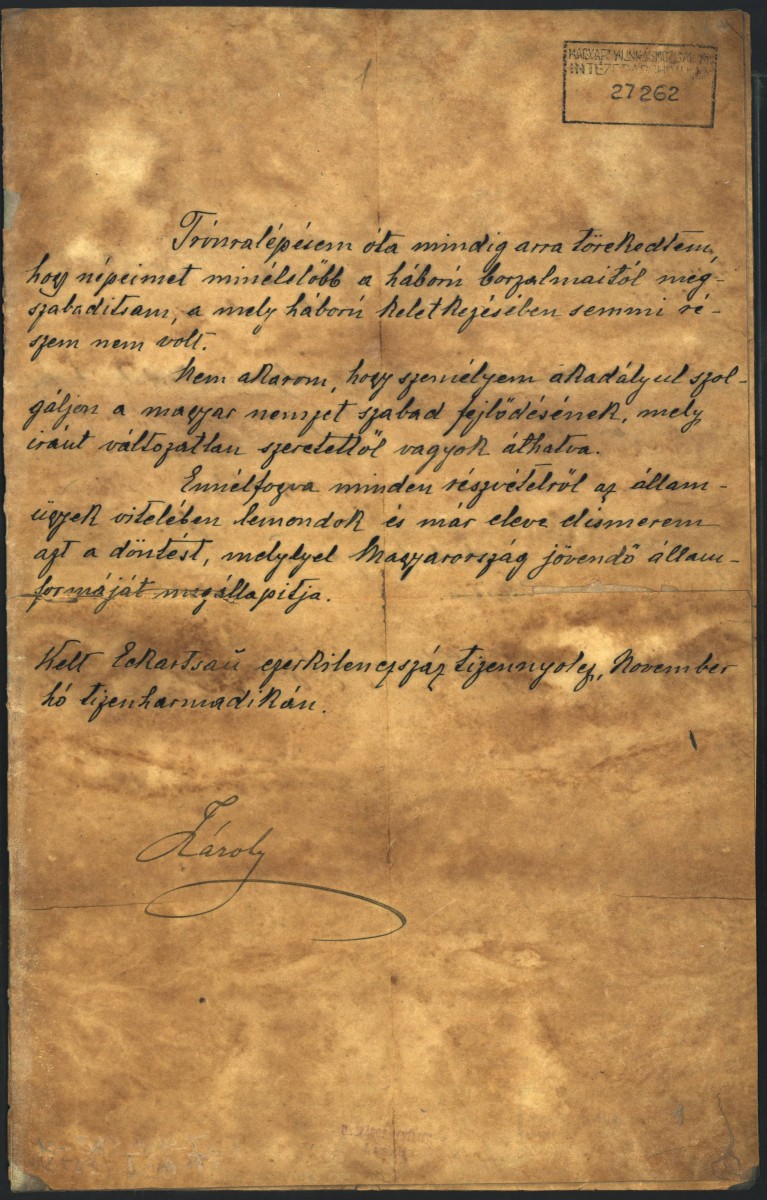 1
MAGYAR MUNKÁSMOZGALMI
INTÉZET
27262
Trónralépésem óta mindig arra törekedtem,
hogy népeimet minélelőbb a háború borzalmaitól meg-
szabadítsam, a mely háború keletkezésében semmi ré-
szem nem volt.
Nem akarom, hogy személyem akadályul szol-
gáljon a magyar nemzet szabad fejlődésének, mely
iránt változatlan szeretettől vagyok áthatva.
Ennélfogva minden részvételről az állam-
ügyek vitelében lemondok és már eleve elismerem
azt a döntést, mely lyel Magyarország jövendő állam-
formáját megállapitja.
Kelt Eckartsaú ezerkilenczszáz tizennyolcz, November
hó tizenharmadikán.
Károly
1